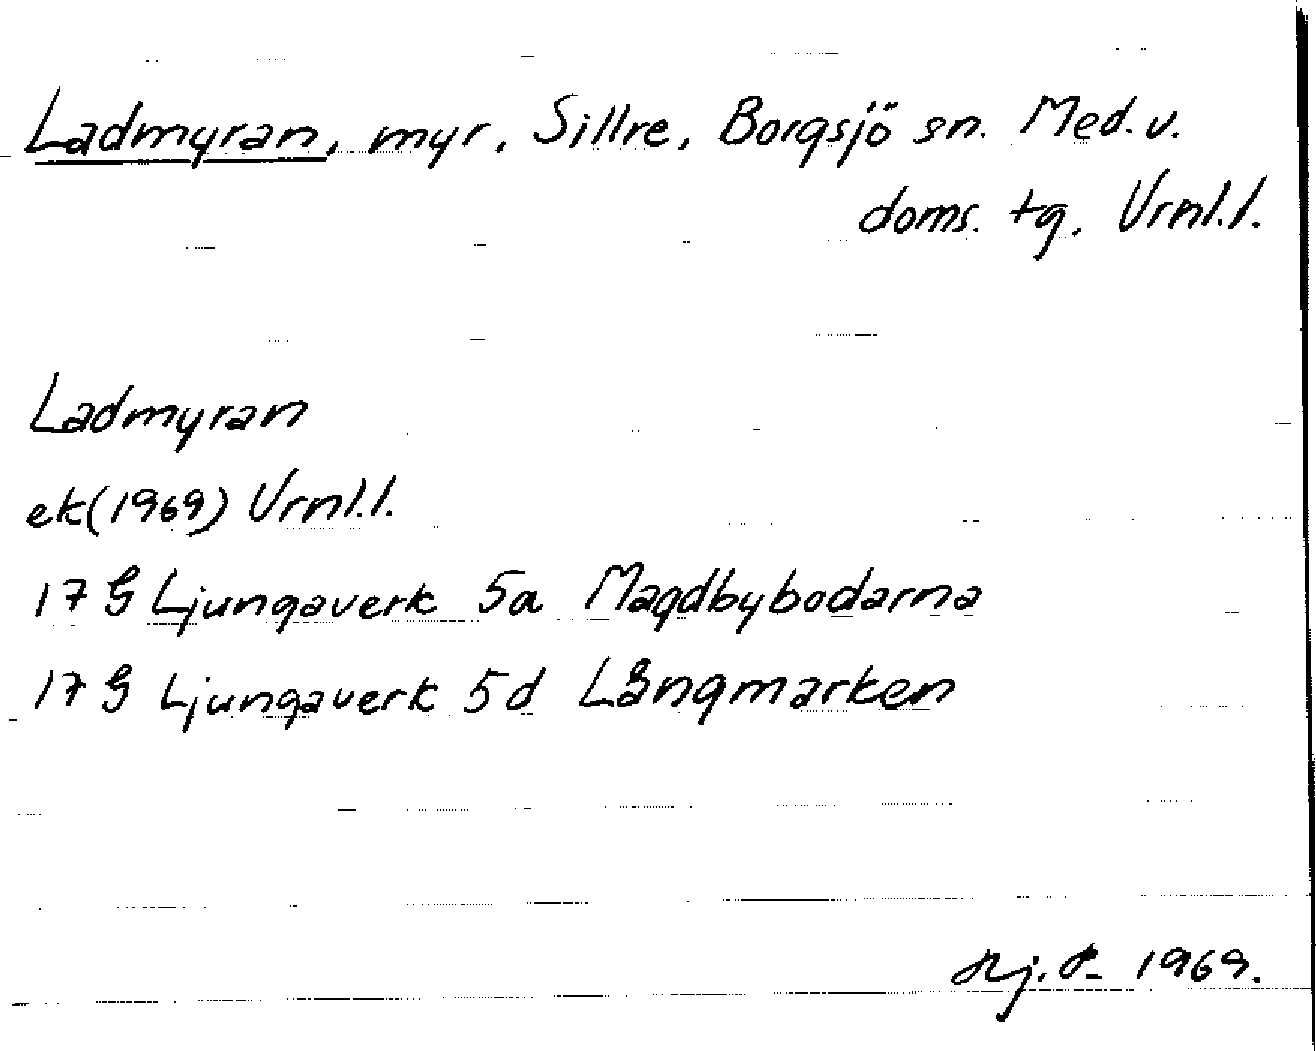 Ladmyran, myr, Sillre, Borgsjö sn. Med. v.
doms. tg. Vrnl.l.
Ladmyran
ek(1969) Vrnl.l.
17 G Ljungaverk 5a Magdbybodarna
17 G Ljungaverk 5d Långmarken
Hj. P. 1969.